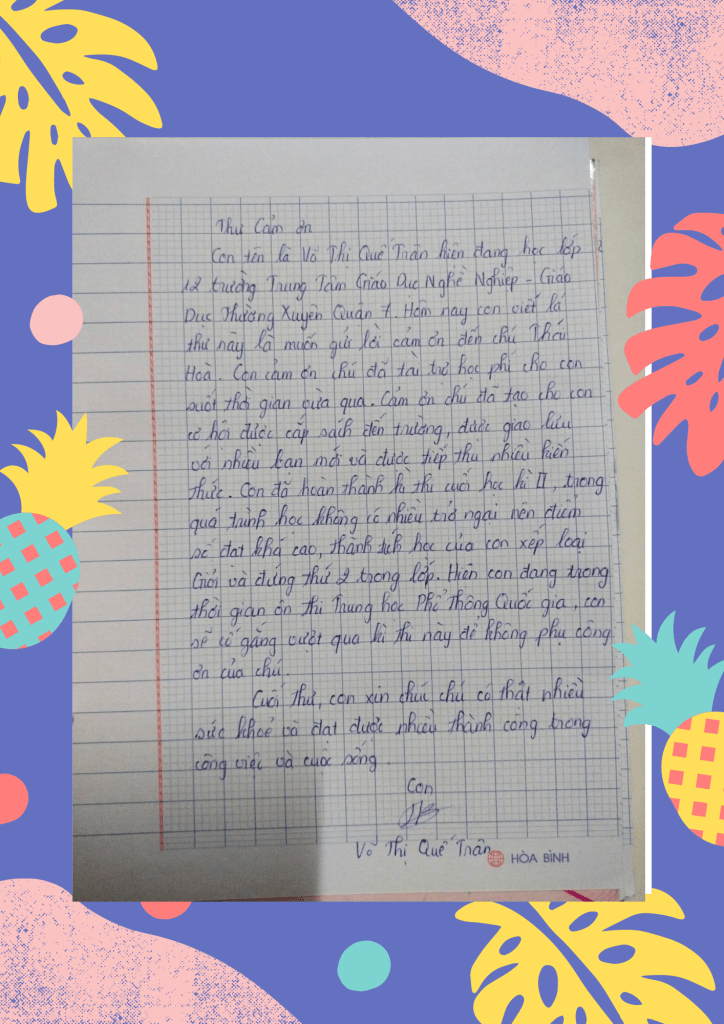 Thư Cảm ơn
Con tên là Võ Thị Quế Trân hiện đang học lớp
12 trường Trung Tâm Giáo Dục Nghề Nghiệp - Giáo
Dục Thường Xuyên Quận 7. Hôm nay con viết lá
thư này là muốn gửi lời cảm ơn đến chú Thái
Hoà. Con cảm ơn chú đã tài trợ học phí cho con
suốt thời gian vừa qua. Cảm ơn chú đã tạo cho con
cơ hội được cấp sách đến trường, được giao lưu
với nhiều bạn mới và được tiếp thu nhiều kiến
thức. Con đã hoàn thành kì thi cuối học kì II, trong
quá trình học không có nhiều trở ngại nên điểm
số đạt khá cao, thành tích học của con xếp loại
Giỏi và đứng thứ 2 trong lớp. Hiện con đang trong
thời gian ôn thi Trung học Phổ Thông Quốc gia, con
sẽ cố gắng vượt qua kì thi này để không phụ công
ơn của chú.
Cuối thư, con xin chúc chú có thật nhiều
sức khoẻ và đạt được nhiều thành công trong
công việc và cuộc sống.
Con
Võ Thị Quế Trân
HÒA BÌNH